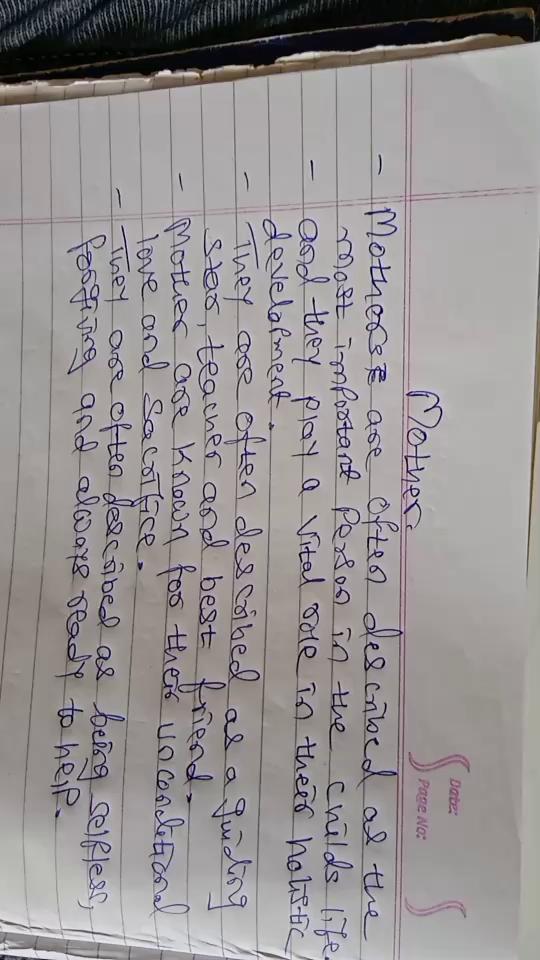 Date:
Page No:
Mother.
- Motherss are often described as the
most important Person in the childs life.
- and they play a vital role in their holistic
development.
- They are often described as a guiding
ster, teacher and best friend.
- Mother are known for their unconditional
love and Sacrifice.
- They are often described as being selfless,
forgiving and always ready to help.